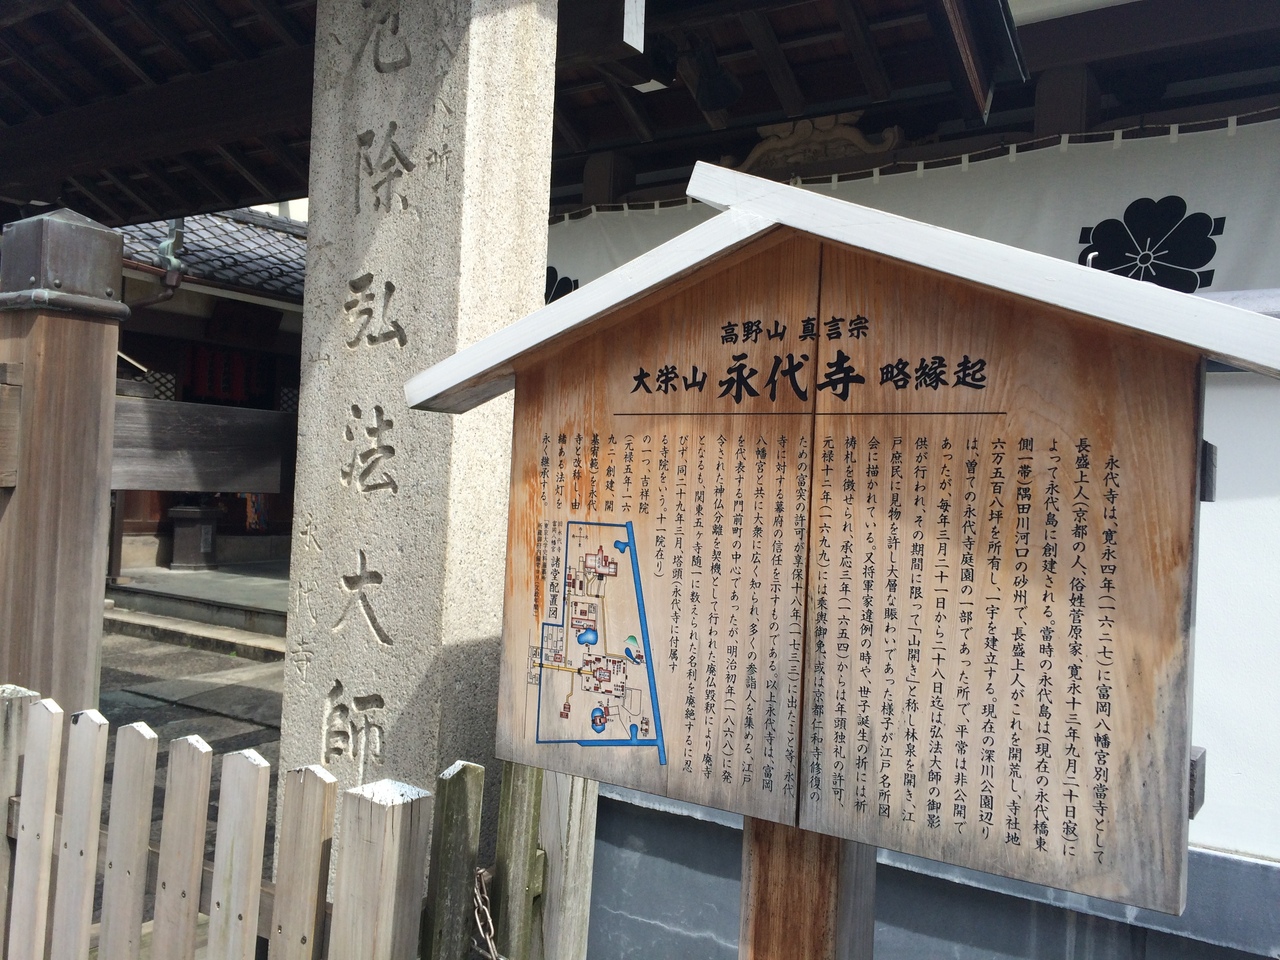 厄除弘法大師
永代寺
高野山 真言宗
大栄山 永代寺 略縁起
永代寺は、寛永四年(一六二七)に富岡八幡宮別當寺として
長盛上人(京都の人、俗姓菅原家、寛永十三年九月二十日寂)に
よって永代島に創建される。當時の永代島は(現在の永代橋東
側一帯)隅田川河口の砂州で、長盛上人がこれを開荒し、寺社地
六万五百八坪を所有し、一宇を建立する。現在の深川公園辺り
は、曽ての永代寺庭園の一部であった所で、平常は非公開で
あったが、毎年三月二十一日から二十八日迄は弘法大師の御影
供が行われ、その期間に限って「山開き」と称し林泉を開き、江
戸庶民に見物を許し大層な賑わいであった様子が江戸名所図
会に描かれている。又将軍家違例の時や、世子誕生の折には祈
祷札を徴せられ、承応三年(一六五四)からは年頭独礼の許可、
元禄十二年(一六九九)には乗輿御免、或は京都仁和寺修復の
ための富突の許可が享保十八年(一七三三)に出たこと等、永代
寺に対する幕府の信任を示すものである。以上永代寺は、富岡
八幡宮と共に大衆に広く知られ、多くの参詣人を集める、江戸
を代表する門前町の中心であったが、明治初年(一八六八)に発
令された神仏分離を契機として行われた廃仏毀釈により廃寺
となるも、関東五ヶ寺随一に数えられた名刹を廃絶するに忍
びず、同二十九年三月、塔頭(永代寺に付属す
る寺院をいう。十一院在り)
の一つ、吉祥院
(元禄五年・一六
九二・創建、開
基宥範)を永代
寺と改称し、由
緒ある法灯を
永く継承する。
富岡八幡宮 諸堂配置図